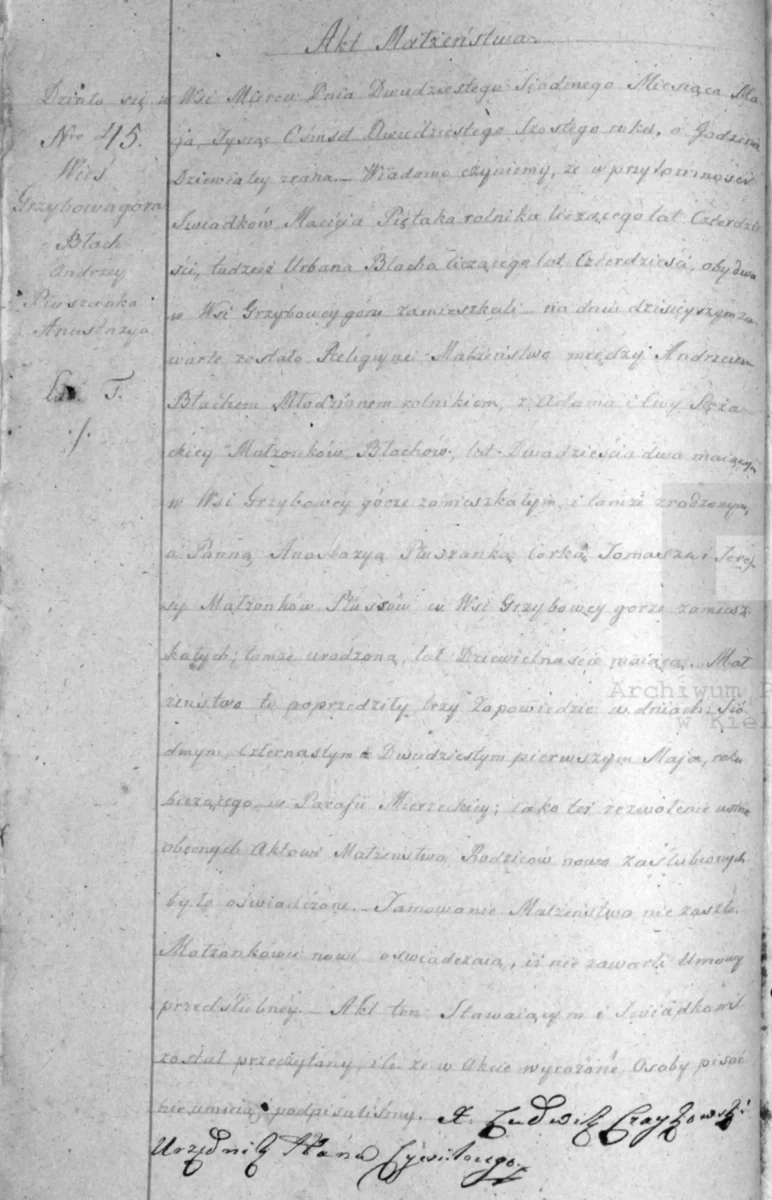 Akt Małżeństwa
Działo się w Wsi Mircu Dnia Dwudziestego Siodmego Miesiąca Ma-
ja, Tysiąc Ośmset Dwudziestego Szostego roku, o Godzinie
Dziewiątey zrana. — Wiadomo czyniemy, że w przytomności
Swiadków Macieja Piętaka rolnika liczącego lat Czterdzie-
ści, tudzież Urbana Błacha liczącego lat Czterdzieści, obydwa
w Wsi Grzybowey górze zamieszkali — na dniu dzisieyszym za-
warte zostało Religiyne Małżeństwo między Andrzeiem
Błachem Młodzianem rolnikiem, z Adama i Ewy
Małżonków Błachów, lat Dwadzieścia dwa maiącym
w Wsi Grzybowey górze zamieszkałym, i tamże zrodzonym,
a Panną Anastazyą Płuszanką Corką Tomasza i Tere-
sy Małżonków Płusów w Wsi Grzybowey gorze zamiesz-
kałych; tamże urodzoną, lat Dziewietnaście maiącą. Mał-
żeństwo to poprzedziły trzy Zapowiedzie w dniach: Sió-
dmym, Czternastym i Dwudziestym pierwszym Maja, roku
bieżącego w Parafii Mirzeckiey; iako też zezwolenie ustne
obecnych Aktowi Małżeństwa Rodziców nowo zaślubionych
było oświadczone. — Tamowanie Małżeństwa nie zaszło.
Małżonkowie nowi oświadczaią, iż nie zawarli Umowy
przedślubney. — Akt ten Stawaiącym i Swiadkom
został przeczytany, ile że w Akcie wyrażone Osoby pisać
nie umieją podpisaliśmy. X. Ludwik Czaykowski
Urzędnik Stanu Cywilnego.
Nro 45.
Wieś
Grzybowagóra
Błach
Andrzey
Płuszanka
Anastazya
T.
./.
Archiwum P
w Kiel